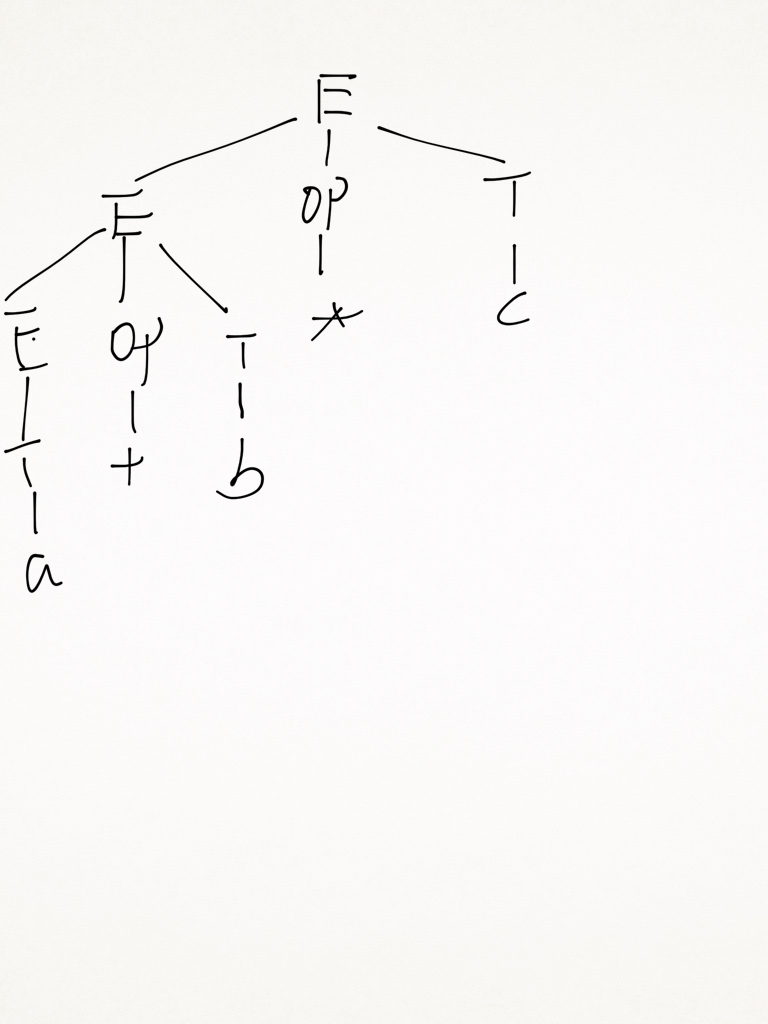 E
E OP T
E OP T * C
T + b
a